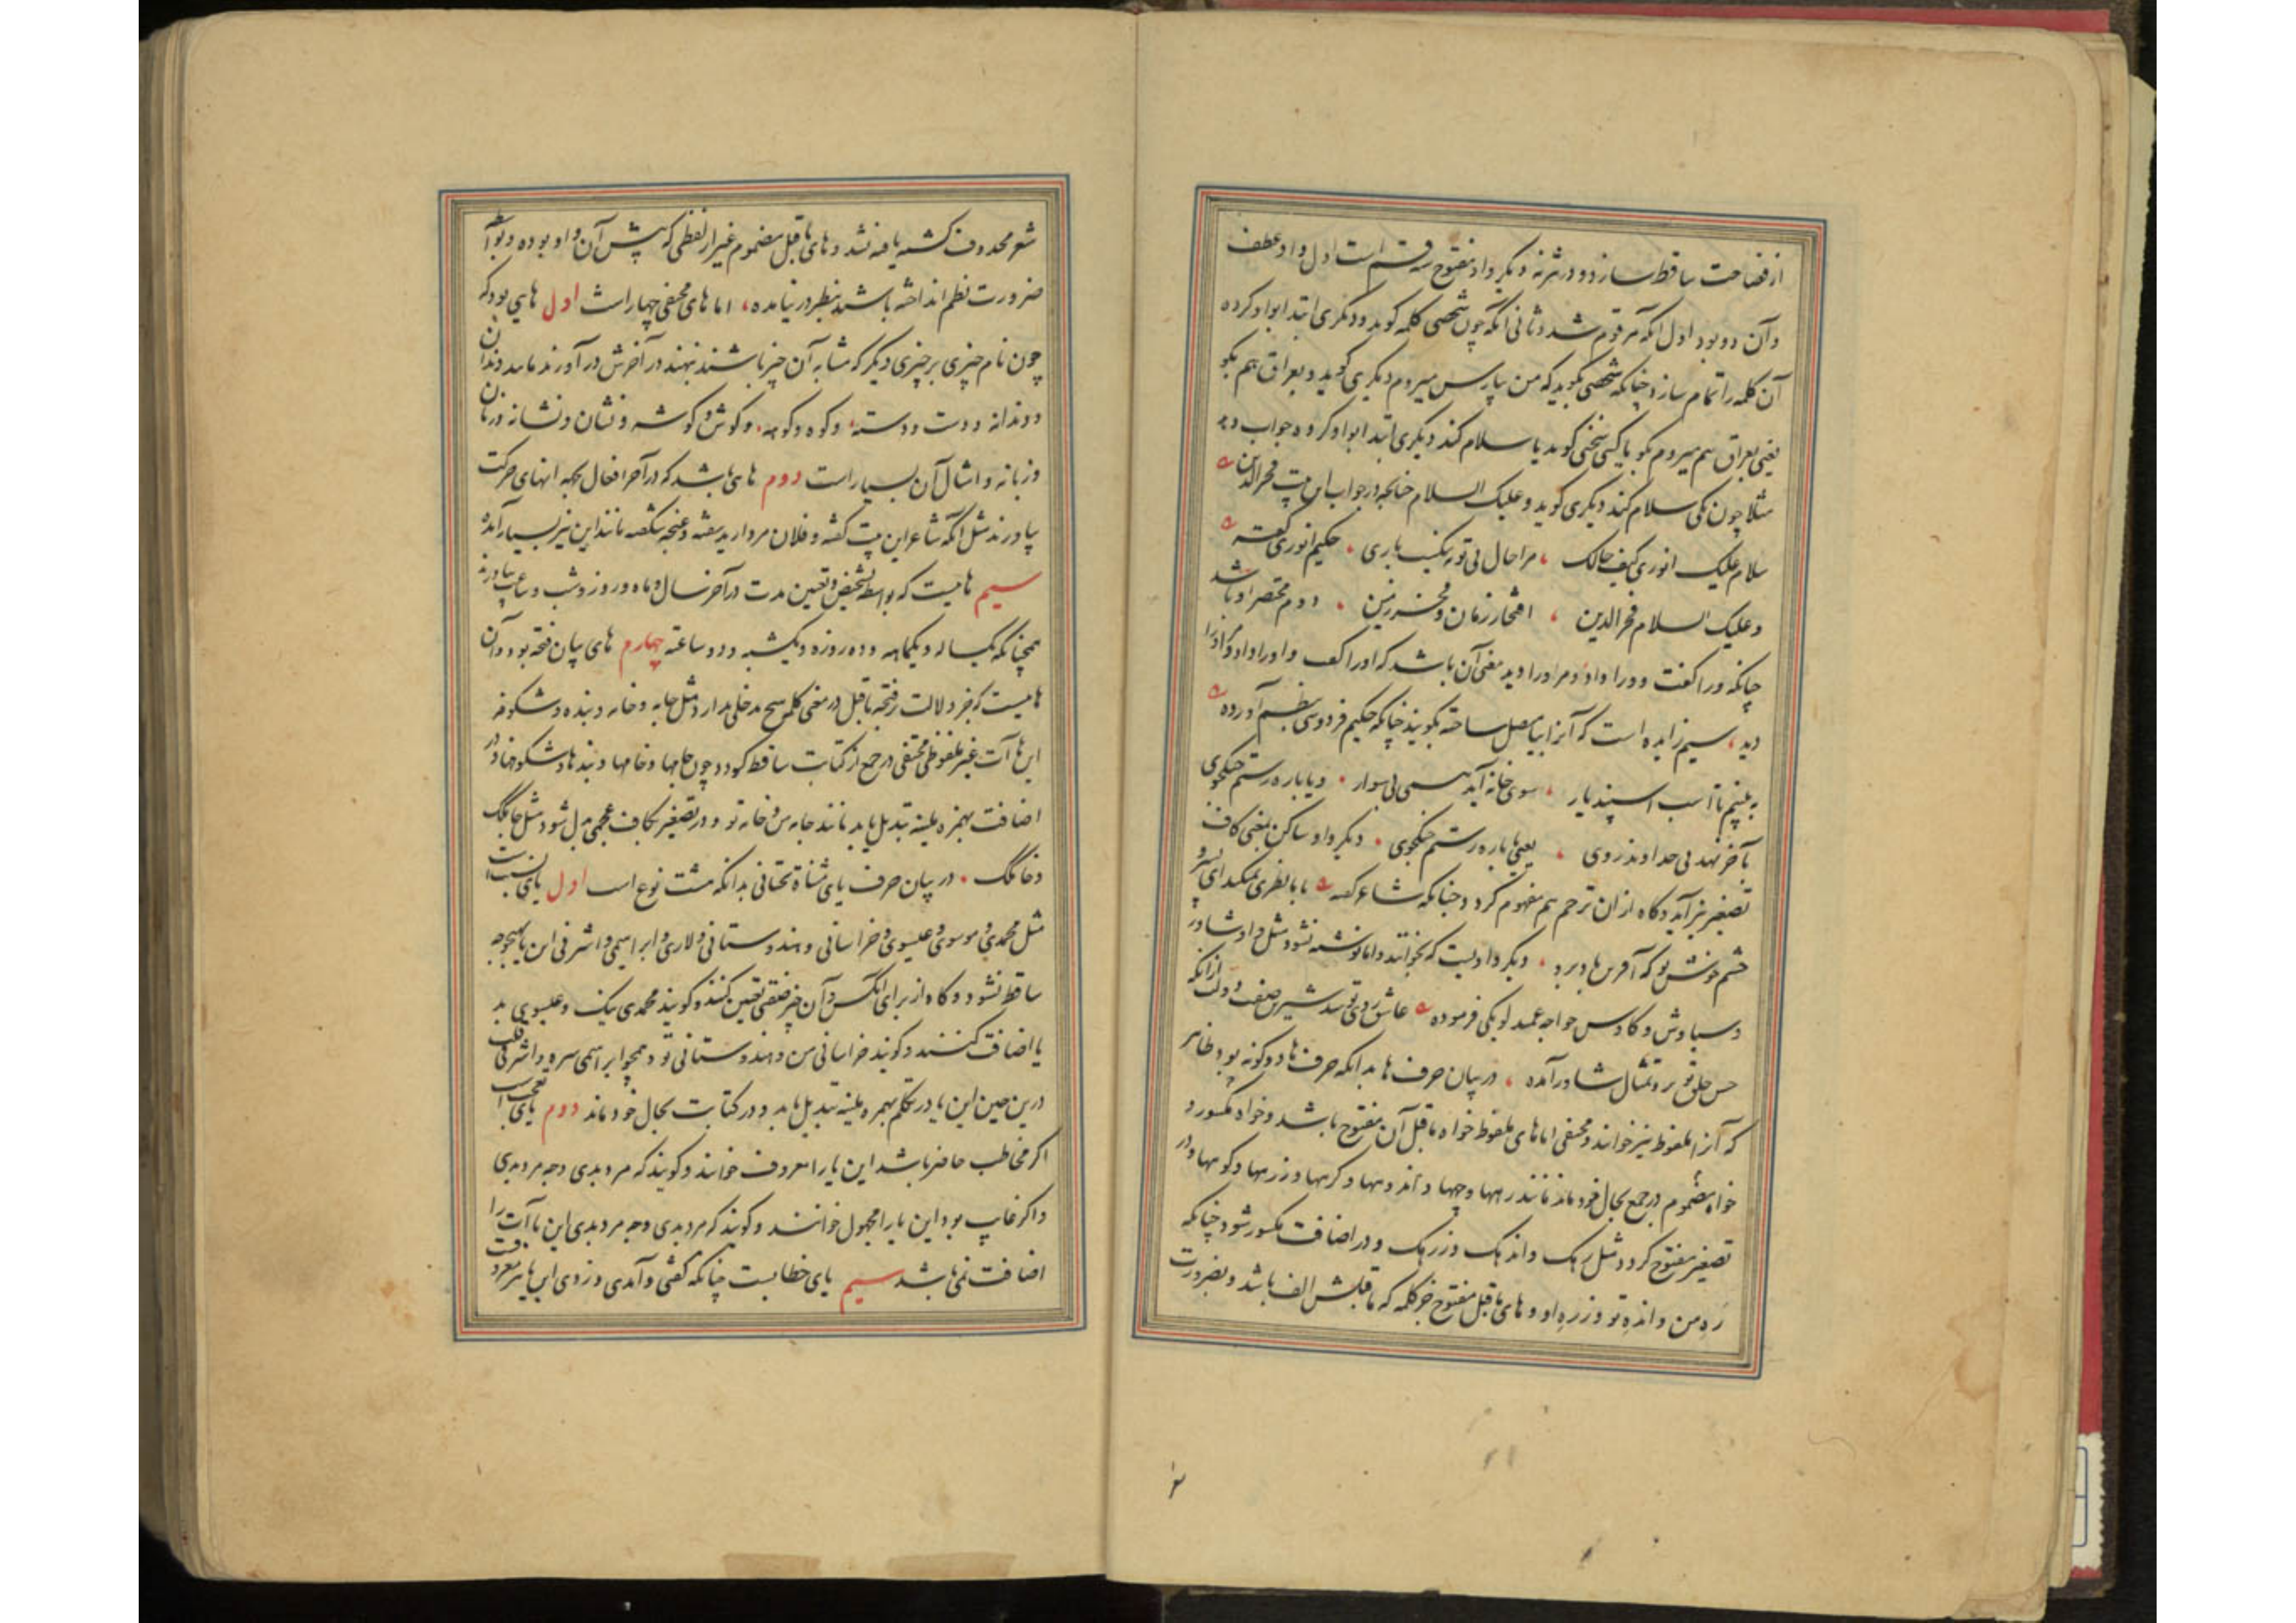 از فصاحت ساقط سازد و در شرنه دیگر واو مفتوح سه قسم است اول واو عطف
وآن دو بود اول آنکه مرقوم شد و ثانی آنکه چون شخصی کلمه گوید و دیگری ابتدا بواو کرده
آن کلمه را تمام سازد چنانکه شخصی بگوید که من پارس میروم دیگری گوید و بعراق هم بگو
یعنی بعراق هم میروم بگو یا کسی سخنی گوید یا سلام کند دیگری ابتدا بواو کرده جواب دهد
مثلا چون یکی سلام کند دیگری گوید و علیک السلام چنانچه در جواب این بیت فخرالدین
سلام علیک انوری کیف حالک ، مرا حال بی تو نه نیکست باری ، حکیم انوری گفته
و علیک السلام فخر الدین ، افتخار زمان و فخر زمین ، دوم مختصر او باشد
چنانکه ورا گفت و ورا داد و مر ورا دید معنی آن باشد که اورا گفت و اورا داد و مر اورا
دید ، سیم زایده است که آنرا بیاصل ساخته بگویند چنانکه حکیم فردوسی بنظم آورده
به بینیم تا اسب اسپندیار ، سوی خانه آید همی بی سوار ، و یا باره رستم جنگجوی
بآخر نهد بی خداوند روی ، یعنی یا باره رستم جنگجوی ، دیگر واو ساکن بمعنی کاف
تصغیر نیز آید و گاه از ان ترحم هم مفهوم گردد چنانکه شاعر گفته با ما نظری نمیکند ای پسرو
چشم خوش تو که آفرین باد برو ، دیگر واویست که بخوانند و اما نوشته نشود مثل واو شاور
و سیاوش و کاوس خواجه عمید لویکی فرموده عاشق روی توسد شیرین صفت و دلت ازانکه
حسن خلق تو بر و تمثال شاور آمده ، در بیان حرف ها بدانکه حرف ها دو گونه بود ظاهر
که آنرا ملفوظ نیز خوانند و مختفی اما های ملفوظ خواه ماقبل آن مفتوح باشد و خواه مکسور و
خواه مضموم در جمع بحال خود ماند مانند رهها و جهها و اندهها و کرهها و زرهها و کوهها و در
تصغیر مفتوح گردد مثل رهک و اندهک و زرهک و در اضافت مکسور شود چنانکه
ره من و انده تو و زره او و های ماقبل مفتوح جز کلمه که ماقبلش الف باشد و بضرورت
شعر محذوف گشته یافته نشد و های ماقبل مضموم غیر از لفظی که پیش آن واو بوده و بواسطه
ضرورت نظم انداخته باشند بنظر در نیامده ، اما های مختفی چهار است اول هایی بود که
چون نام چیزی بر چیزی دیگر که مشابه آن چیز باشند نهند در آخرش در آورند مانند دندان
و دندانه و دست و دسته ، و کوه و کوهه ، و گوش و گوشه و نشان و نشانه و زبان
و زبانه و امثال آن بسیار است دوم های باشد که در آخر افعال بجهه انتهای حرکت
بیاورند مثل آنکه شاعر این بیت گفته و فلان مروارید سفته و غنچه شگفته مانند این نیز بسیار آمده
سیم هاییست که بواسطه تشخیص و تعیین مدت در آخر سال و ماه و روز و شب و ساعت بیاورند
همچنانکه یکساله و یکماهه و ده روزه و یکشبه و دو ساعته چهارم های بیان فتحه بود و آن
هاییست که جز دلالت بر فتحه ماقبل در معنی کلمه هیچ مدخلی ندارد مثل جامه و خانه و بنده و شکوفه
این ها آت غیر ملفوظ مختفی در جمع از کتابت ساقط گردد چون جامها و خامها و بندها و شکوفها و در
اضافت بهمزه ملینه تبدیل یابد مانند جامه من و خانه تو و در تصغیر بکاف عجمی بدل شود مثل جامگک
و خانگک ، در بیان حرف یای مثناة تحتانی بدانکه هشت نوع است اول یای نسبت است
مثل محمدی و موسوی و عیسوی و خراسانی و هندوستانی و لاری و ابراهیمی و اشرفی این یا بهیچوجه
ساقط نشود و گاه از برای آنکس و آن چیز صفتی تعیین کنند و گویند محمدی نیک و عیسوی بد
یا اضافت کنند و گویند خراسانی من و هندوستانی تو و همچو ابراهیمی سره و اشرفی قلب
درین حین این یا در تکلم بهمزه ملینه تبدیل یابد و در کتابت بحال خود ماند دوم یای تعجب است
اگر مخاطب حاضر باشد این یا را معروف خوانند و گویند که مردیدی و چه مردیدی
و اگر غایب بود این یا را مجهول خوانند و گویند که مردیدی و چه مردیدی این یا آت را
اضافت نمی باشد سیم یای خطابست چنانکه گفتی و آمدی و زدی این یا نیز معروفست